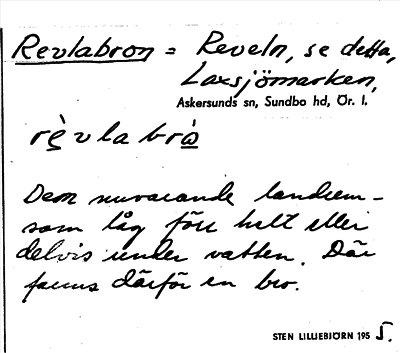 Revlabron = Reveln, se detta,
Laxsjömarken,
Askersunds sn, Sundbo hd, Ör. l.
rèvla brò
Den nuvarande landrem-
som låg förr helt eller
delvis under vatten. Där
fanns därför en bro.
STEN LILLIEBJÖRN 195 5.